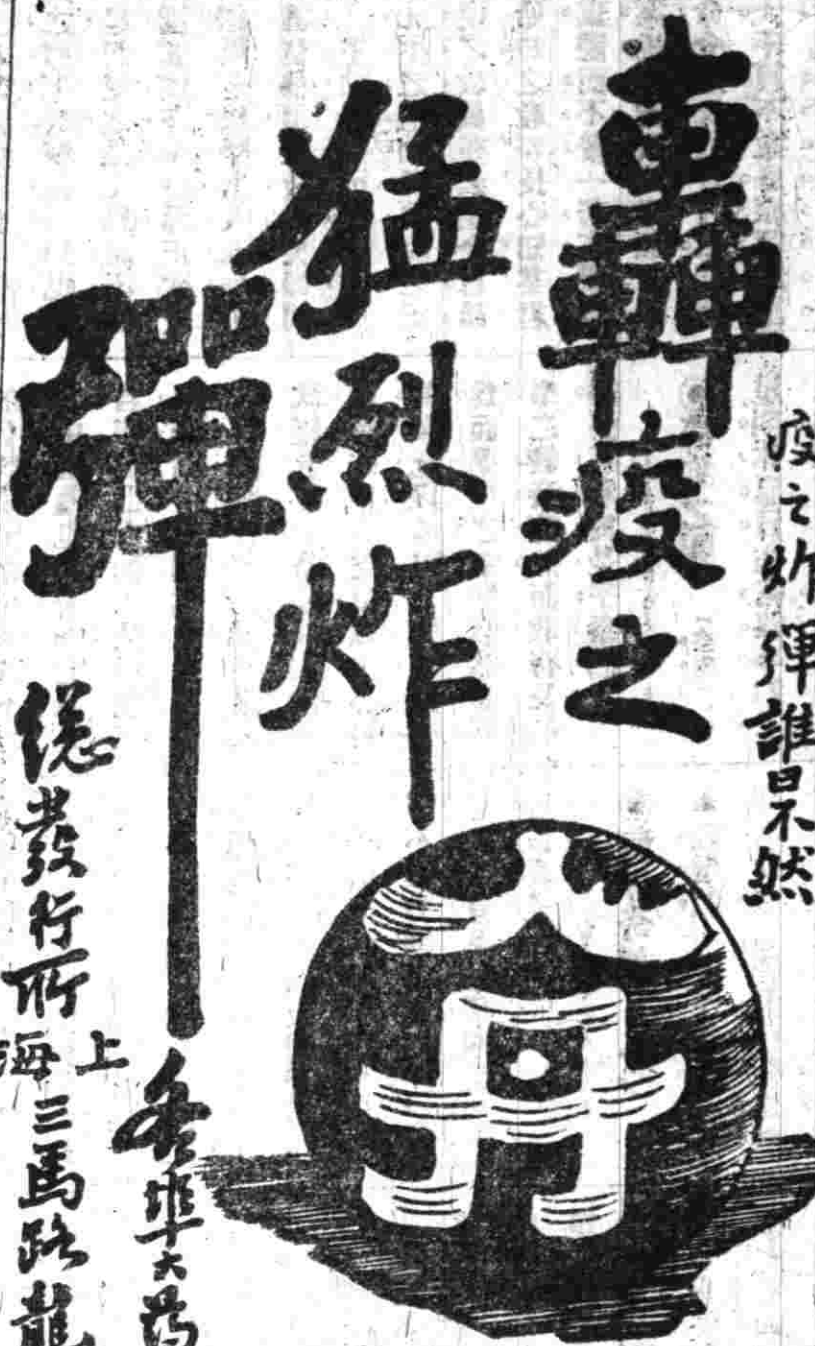 疫之炸彈誰曰不然
轟疫之
猛烈炸
彈
人丹
各埠大葯
總發行所
上海
三馬路龍